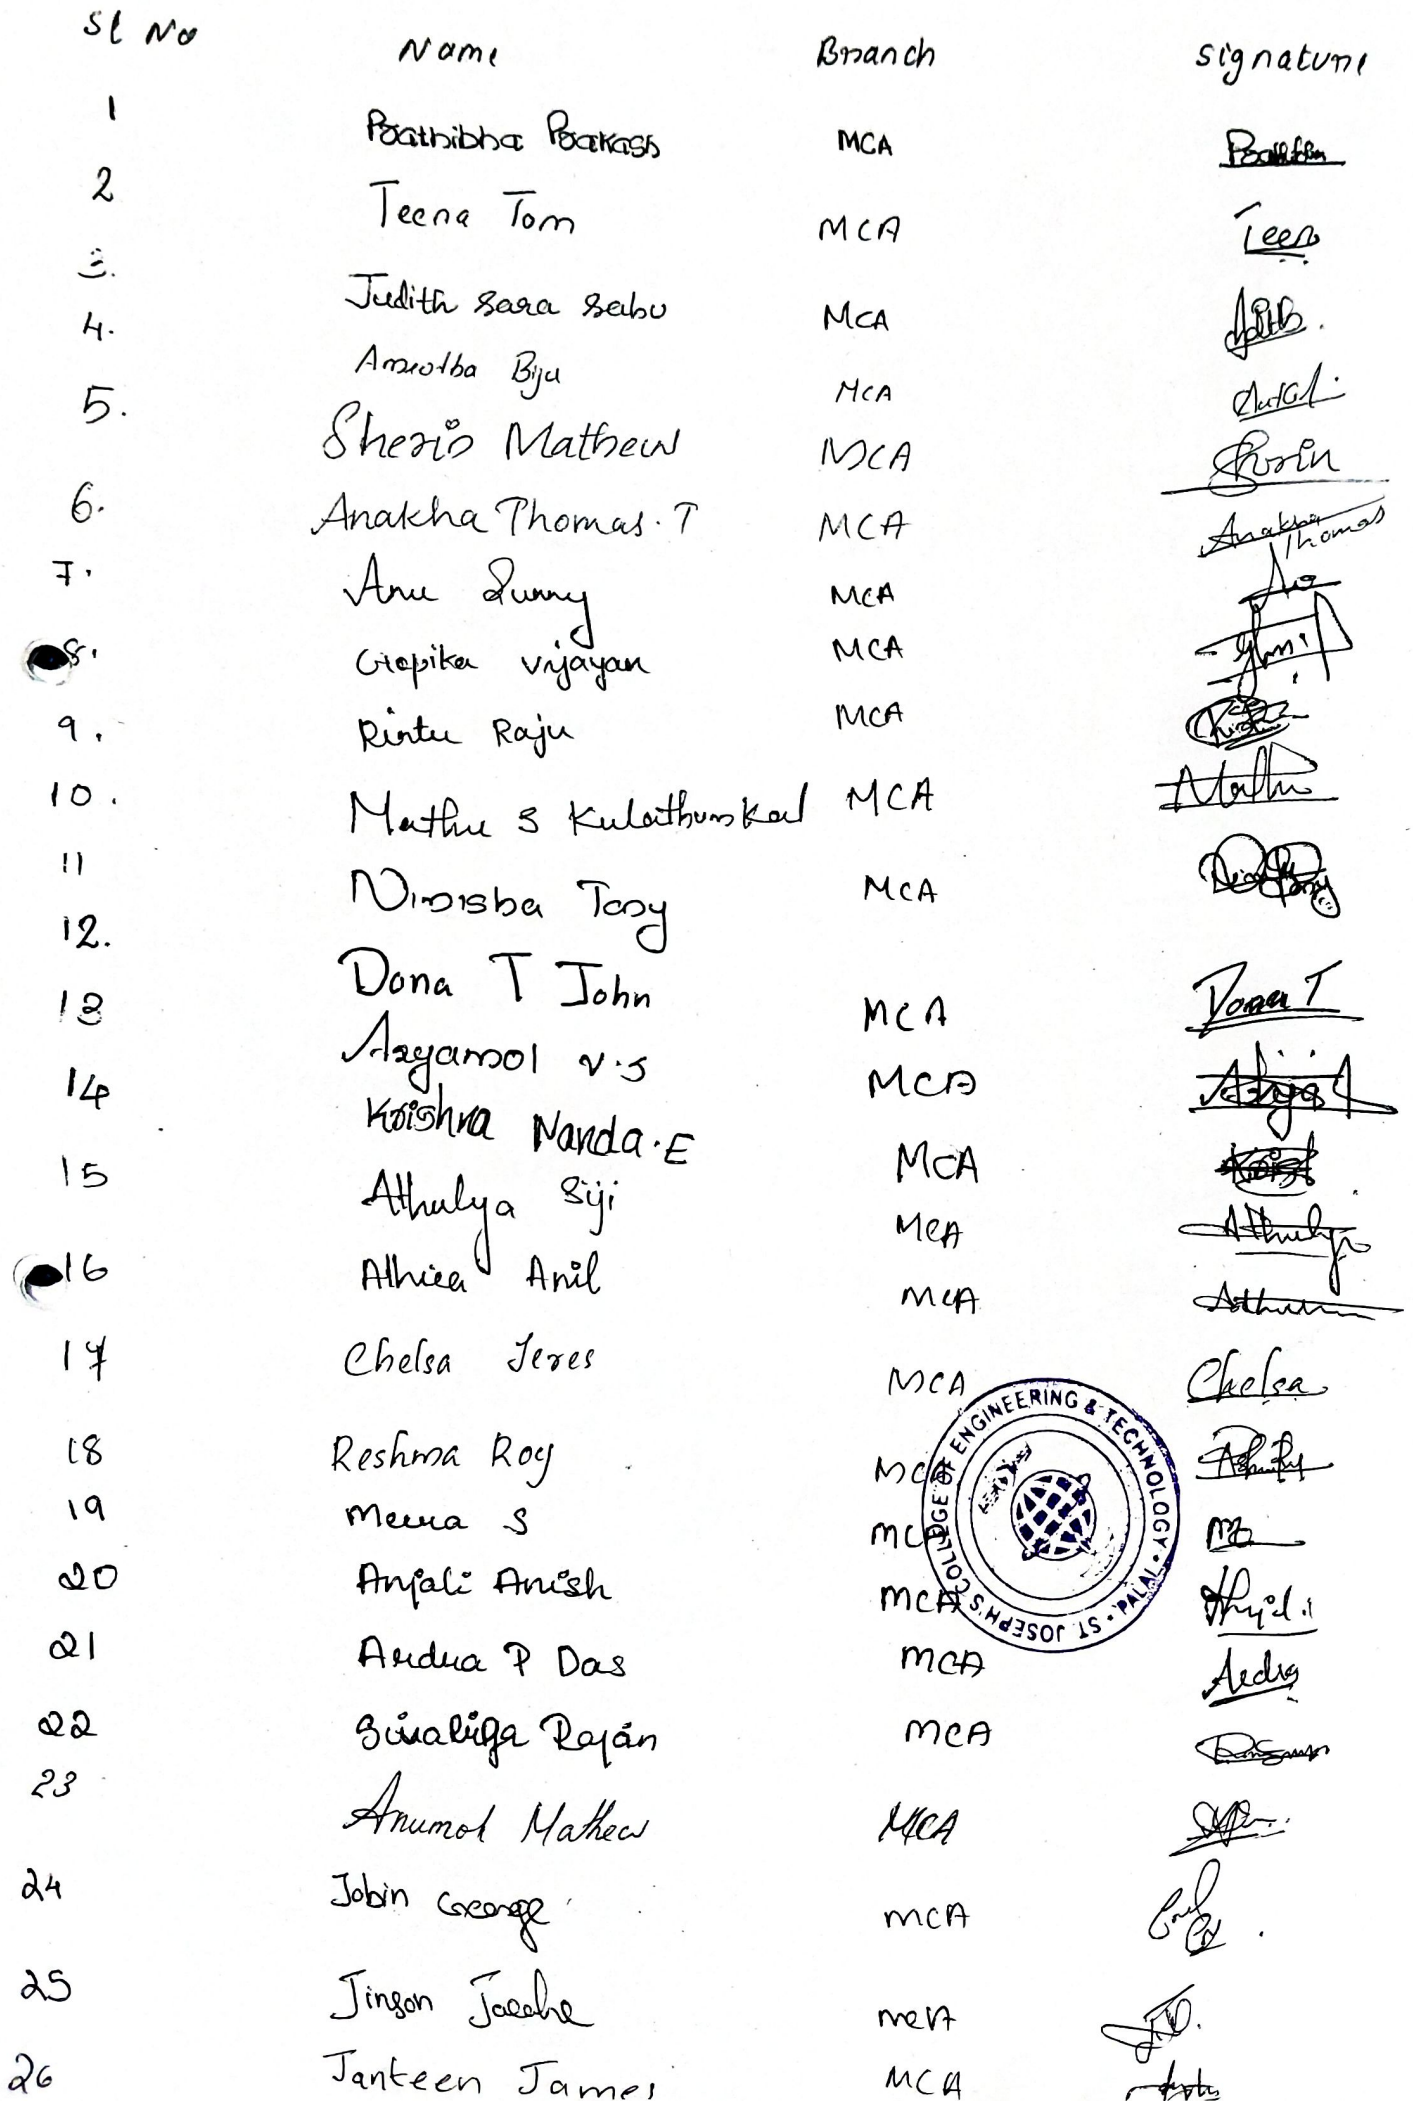 Sl No Name Branch Signature
1 Prathibha Prakash MCA
2 Teena Tom MCA Teena
3. Judith Sara Sabu MCA Judith.
4. Amrutha Biju MCA
5. Sherin Mathew MCA Sherin
6. Anakha Thomas. T MCA Anakha Thomas
7. Anu Sunny MCA Anu
8. Gopika Vijayan MCA
9. Rintu Raju MCA
10. Mathu S Kulathunkal MCA Mathu
11 Nimisha Tony MCA
12. Dona T John MCA Dona T
13 Aryamol V.S MCA
14 Krishna Nanda.E MCA
15 Athulya Siji MCA Athulya
16 Athira Anil MCA
17 Chelsa Jeres MCA Chelsa
18 Reshma Roy MCA
19 Meera S MCA
20 Anjali Anish MCA
21 Ardra P Das MCA Ardra
22 Rajan MCA
23 Anumol Mathew MCA
24 Jobin George MCA
25 Jinson Jacobe MCA
26 Janteen James MCA
ST. JOSEPH'S COLLEGE OF ENGINEERING & TECHNOLOGY • PALAI •